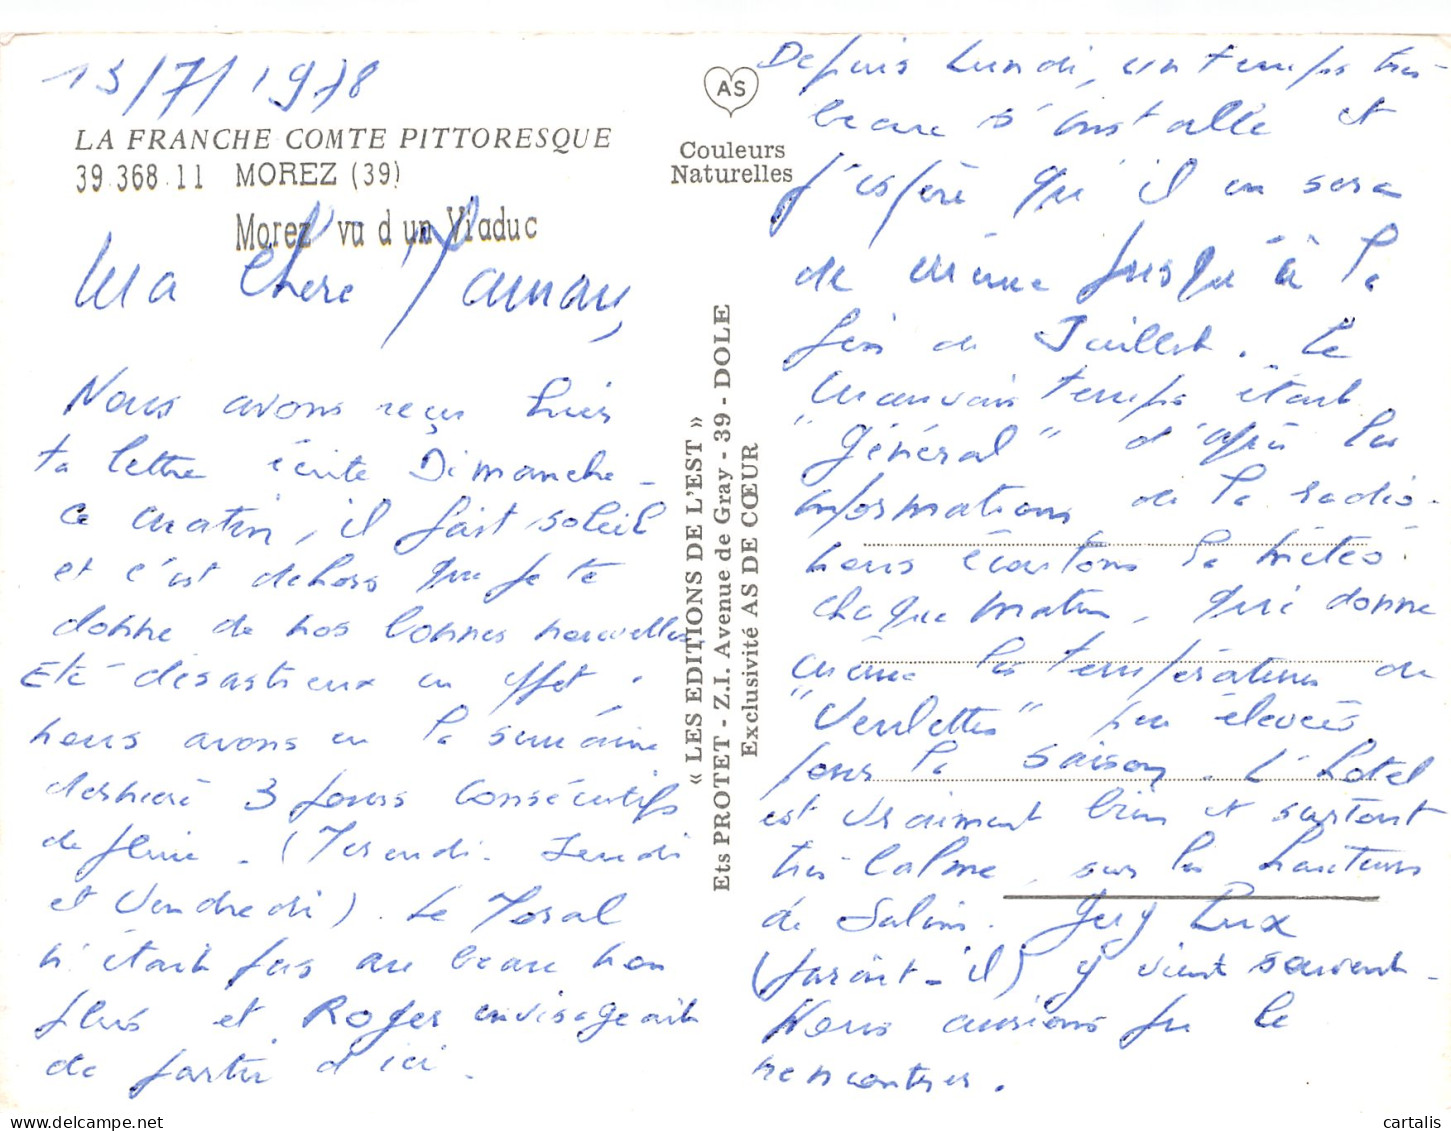 13/7/1978
LA FRANCHE COMTE PITTORESQUE
39.368.11 MOREZ (39)
Morez vu d'un Viaduc
Ma chère Maman,
Nous avons reçu hier
ta lettre écrite Dimanche -
ce matin, il fait soleil
et c'est dehors que je te
donne de nos bonnes nouvelles.
Eté désastreux en effet.
nous avons eu la semaine
dernière 3 jours consécutifs
de pluie. (Mercredi - Jeudi
et Vendredi). Le Moral
n'était pas au beau non
plus et Roger envisageait
de partir d'ici.
AS
Couleurs
Naturelles
« LES EDITIONS DE L'EST »
Ets PROTET - Z.I. Avenue de Gray - 39 - DOLE
Exclusivité AS DE CŒUR
Depuis Lundi, un temps très
beau s'installe et
j'espère qu'il en sera
de même jusqu'à la
fin de Juillet. Le
mauvais temps était
"général" d'après les
informations de la radio.
nous écoutons la météo
chaque matin, qui donne
même les températures
"Vedettes" peu élevées
pour la saison. L'hotel
est vraiment bien et surtout
très calme, sur les hauteurs
de Salins. Guy Lux
(paraît-il) y vient souvent -
Nous aurions pu le
rencontrer.
cartalis